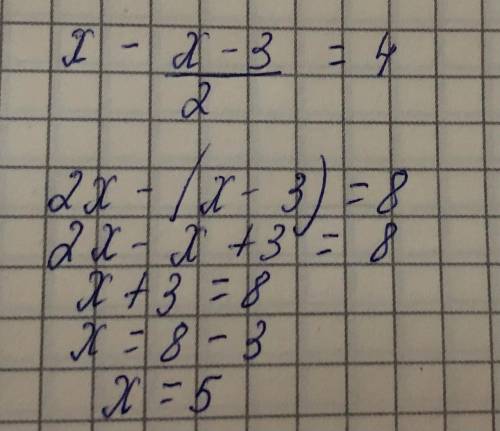 x - (x - 3)/2 = 4
2x - (x - 3) = 8
2x - x + 3 = 8
x + 3 = 8
x = 8 - 3
x = 5